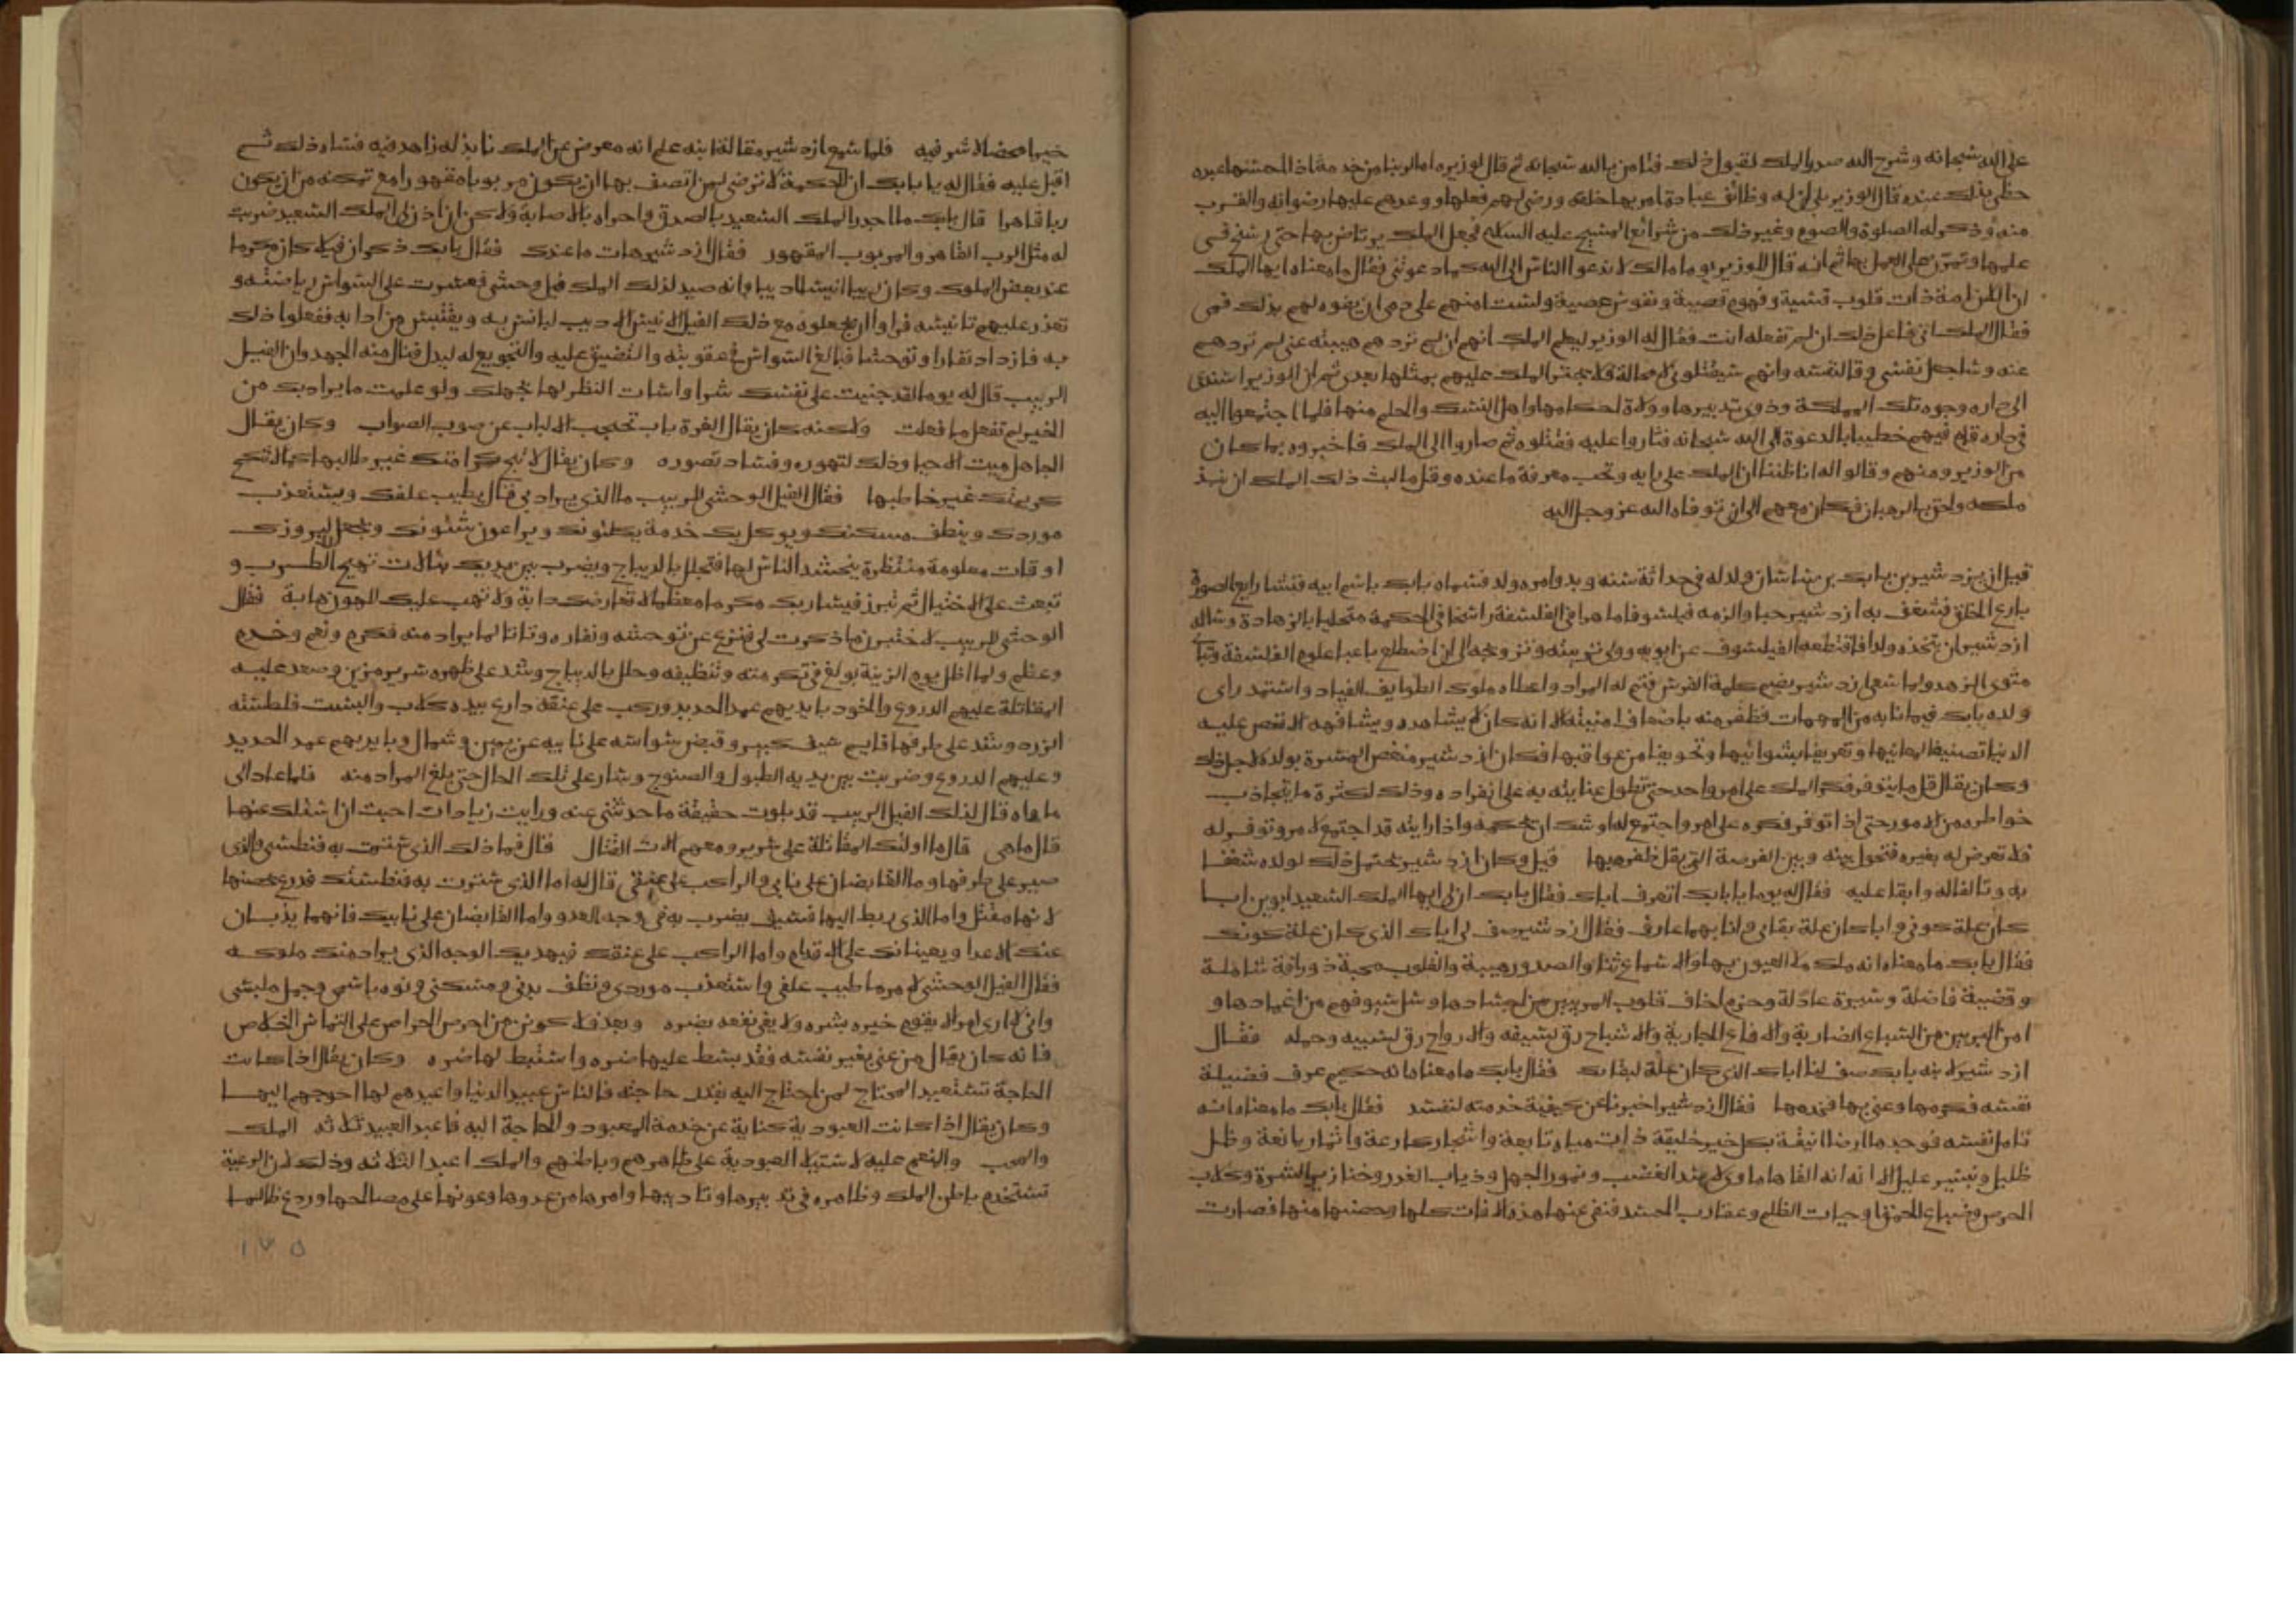 على الله سبحانه وشرح الله صدر الملك لقبول ذلك فامن بالله سبحانه ثم قال لوزيره اما لربنا من خدمة اذا المحسنها عبده
حظى بذلك عنده قال الوزير بلى ان له وظائف عبادة امر بها خلقه ورضى لهم فعلها ووعدهم عليها رضوانه والقرب
منه وذكر له الصلوة والصوم وغير ذلك من شرائع المسيح عليه السلام فجعل الملك يرتاض بها حتى رسخ في
عليها وتمرن على العمل بها ثم انه قال للوزير يوما مالك لا تدعوا الناس الى الله كما دعوتني فقال ما معناه ايها الملك
ان الامة ذات قلوب قسية وفهوم قصية ونفوس عصية ولست امنهم على دمى ان يفوه لهم بذلك فمى
فقال الملك انى فاعل ذلك ان لم تفعله انت فقال له الوزير ليعلم الملك انهم ان لم تردهم هيبته عنى لم تردهم
عنه وساجعل نفسى وقا لنفسه وانهم سيقتلوني لا محالة فلا يجتر الملك عليهم بمثلها بعدى ثم ان الوزير استدعى
الى داره وجوه تلك المملكة وذوى تدبيرها وولاة احكامها واهل النسك والحلم منها فلما اجتمعوا اليه
في داره قام فيهم خطيبا بالدعوة الى الله سبحانه فثاروا عليه فقتلوه ثم صاروا الى الملك فاخبروه بما كان
من الوزير ومنهم وقالوا له انا ظننا ان الملك على رايه ونحب معرفة ما عنده وقل ما لبث ذلك الملك ان نبذ
ملكه ولحق بالرهبان فكان معهم الى ان توفاه الله عز وجل اليه
قيل ان ازدشير بن بابك بن ساسان ولد له في حداثة سنه وبدو امره ولد فسماه بابك باسم ابيه فنشا رايع الصورة
بارع الخلق فشغف به ازدشير حبا والزمه فيلسوفا ماهرا في الفلسفة راسخا في الحكمة متحليا بالزهادة وساله
ازدشير ان يتخذه ولدا فاقتطعه الفيلسوف عن ابويه وولى تربيته وتزوجه الى ان اضطلع باعبا علوم الفلسفة وتبا
مثوى الزهد ولما سعى ازدشير بضم كلمة الفرس فتم له المراد واعطاه ملوك الطوايف القياد واستمد راى
ولده بابك فيما نابه من المهمات فظفر منه باضعاف امنيته الا انه كان لا يشاهده ويشافهه الا نغص عليه
الدنيا تصنيفا لمعايبها وتعريفا بشوائبها وتخويفا من عواقبها فكان ازدشير منغص المسرة بولده لاجل ذلك
وكان يقال قل ما يتوفر فكر الملك على امر واحد حتى تطول عنايته به على انفراده وذلك لكثرة ما يتجاذب
خواطره من الامور حتى اذا توفر فكره على امر واجتمع له او شك ان يحكمه واذا رايته قد اجتمع لامر وتوفر له
فلا تعرض له بغيره فتحول بينه وبين الفرصة التي يقل ظفره بها قيل وكان ازدشير يحتمل ذلك لولده شغفا
به وتالفا له وابقا عليه فقال له يوما يا بابك اتعرف اباك فقال بابك ان لى ايها الملك السعيد ابوين ابا
كان علة كونى وابا كان علة بقاى وانا بهما عارف فقال ازدشير صف لى اباك الذى كان علة كونك
فقال بابك ما معناه انه ملك ملا العيون بها والاسماع ثنا والصدور هيبة والقلوب محبة ذو رافة شاملة
وقضية فاضلة وسيرة عادلة وحزم اخاف قلوب المريبين من اجسادها وسل سيوفهم من اغمادها و
امن البريين من السباع الضارية والافاع الجارية والاشباح رق لسيفه والارواح رق لسيبه وحيله فقال
ازدشير لابنه بابك صف لنا اباك الذى كان علة لبقاك فقال بابك ما معناه انه حكيم عرف فضيلة
نفسه فكرمها وعنى بها فخدمها فقال ازدشير اخبرنا عن كيفية خدمته لنفسه فقال بابك ما معناه انه
تامل نفسه فوجدها ارضا انيقة بكل خير خليقة ذات مياه نابعة واشجار كارعة واثمار يانعة وظل
ظليل ونسيم عليل الا انه الفاها ماوى لاسد الغضب ونمور الجهل وذياب الغدر وخنازير الشره وكلاب
الحرص وضباع الحمق وحيات الظلم وعقارب الحسد فنفى عنها هذه الافات كلها وحصنها منها فصارت
خيرا محضا لا شر فيه فلما سمع ازدشير مقالة ابنه علم انه معرض عن الملك نابذ له زاهد فيه فساه ذلك ثم
اقبل عليه فقال له يا بابك ان الحكمة لا ترضى لمن اتصف بها ان يكون مربوبا مقهورا مع تمكنه من ان يكون
ربا قاهرا قال بابك ما اجدر الملك السعيد بالصدق واحراه بالاصابة ولكن ان اذن لى الملك السعيد ضربت
له مثل الرب القاهر والمربوب المقهور فقال ازدشير هات ما عندك فقال بابك ذكر ان فيلا كان مكرما
عند بعض الملوك وكان ربيبا انيسا اديبا وانه صيد لذلك الملك فيل وحشى فعسرت على السواس رياضته و
تعذر عليهم تانيسه فراوا ان يجعلوه مع ذلك الفيل الانيس الاديب ليانس به ويقتبس من ادابه ففعلوا ذلك
به فازداد نفارا وتوحشا فبالغ السواس في عقوبته والتضييق عليه والتجويع له ليذل فنال منه الجهد وان الفيل
الربيب قال له يوما لقد جنيت على نفسك شرا واسات النظر لها بجهلك ولو علمت ما يراد بك من
الخير لم تفعل ما فعلت ولكنه كان يقال الغرة باب تحجب الالباب عن صوب الصواب وكان يقال
الجاهل ميت الاحيا وذلك لتهوره وفساد تصوره وكان يقال لا تبح كرامتك غير طالبها كما لا تنكح
كريمتك غير خاطبها فقال الفيل الوحشى للربيب ما الذى يراد بى قال يطيب علفك ويستعذب
موردك وينظف مسكنك ويوكل بك خدمة يكلئونك ويراعون شئونك ويجعل لبروزك
اوقات معلومة منتظرة يحتشد الناس لها فتجلل بالديباج ويضرب بين يديك بالات تهيج الطرب و
تبعث على الاختيال ثم تبرز فيسار بك مكرما معظما لا تعارضك دابة ولا تهب عليك للهون هابة فقال
الوحشى للربيب لاختبرن ما ذكرت لى فنزع عن توحشه ونفاره وتاتا لما يراد منه فكرم ونعم وخدم
وعظم ولما اظل يوم الزينة بولغ في تكرمته وتنظيفه وجلل بالديباج وشد على ظهره سرير مزين وصعد عليه
المقاتلة عليهم الدروع والخود بايديهم عمد الحديد وركب على عنقه دارع بيده كلاب والبست فلطسته
الزرد وشد على طرفها قايم سيف كبير وقبض سواسه على نابيه عن يمين وشمال وبايديهم عمد الحديد
وعليهم الدروع وضربت بين يديه الطبول والصنوج وسار على تلك الحال حتى بلغ المراد منه فلما عاد الى
ماواه قال لذلك الفيل الربيب قد بلوت حقيقة ما حدثتنى عنه ورايت زيادات احببت ان اسئلك عنها
قال ما هى قال ما اولئك المقاتلة على سريره ومعهم الات القتال قال فما ذلك الذى سترت به فنطستى والذى
صير على طرفها وما القابضان على نابى والراكب على عنقى قال له اما الذى سترت به فنطستك فدرع يحصنها
لانها مقتل واما الذى ربط اليها فسيف يضرب به في وجه العدو واما القابضان على نابيك فانهما يذبان
عنك الاعدا ويعينانك على الاقدام واما الراكب على عنقك فيهديك الوجه الذى يراد منك سلوكه
فقال الفيل الوحشى لامر ما طيب علفى واستعذب موردى ونظف بدنى ومسكنى ونوه باسمى وجمل ملبسى
وانى لارى امرا لا يقوم خيره بشره ولا يفى نفعه بضره وبعد فلاكونن من احرص الحراص على التماس الخلاص
فانه كان يقال من عنى بغير نفسه فقد بسط عليها ضره واستنبط لها ضره وكان يقال اذا كانت
الحاجة تستعبد المحتاج لمن احتاج اليه بقدر حاجته فالناس عبيد الدنيا واعبدهم لها احوجهم اليها
وكان يقال اذا كانت العبودية كناية عن خدمة المعبود والحاجة اليه فاعبد العبيد ثلاثة الملك
والمحب والنعم عليه لاستيلا العبودية على ظاهرهم وباطنهم والملك اعبد الثلاثة وذلك لان الرعية
تستخدم باطن الملك وظاهره في تدبيرها وتاديبها وامرها من عدوها وعونها على مصالحها وردع ظالمها
١٧٥